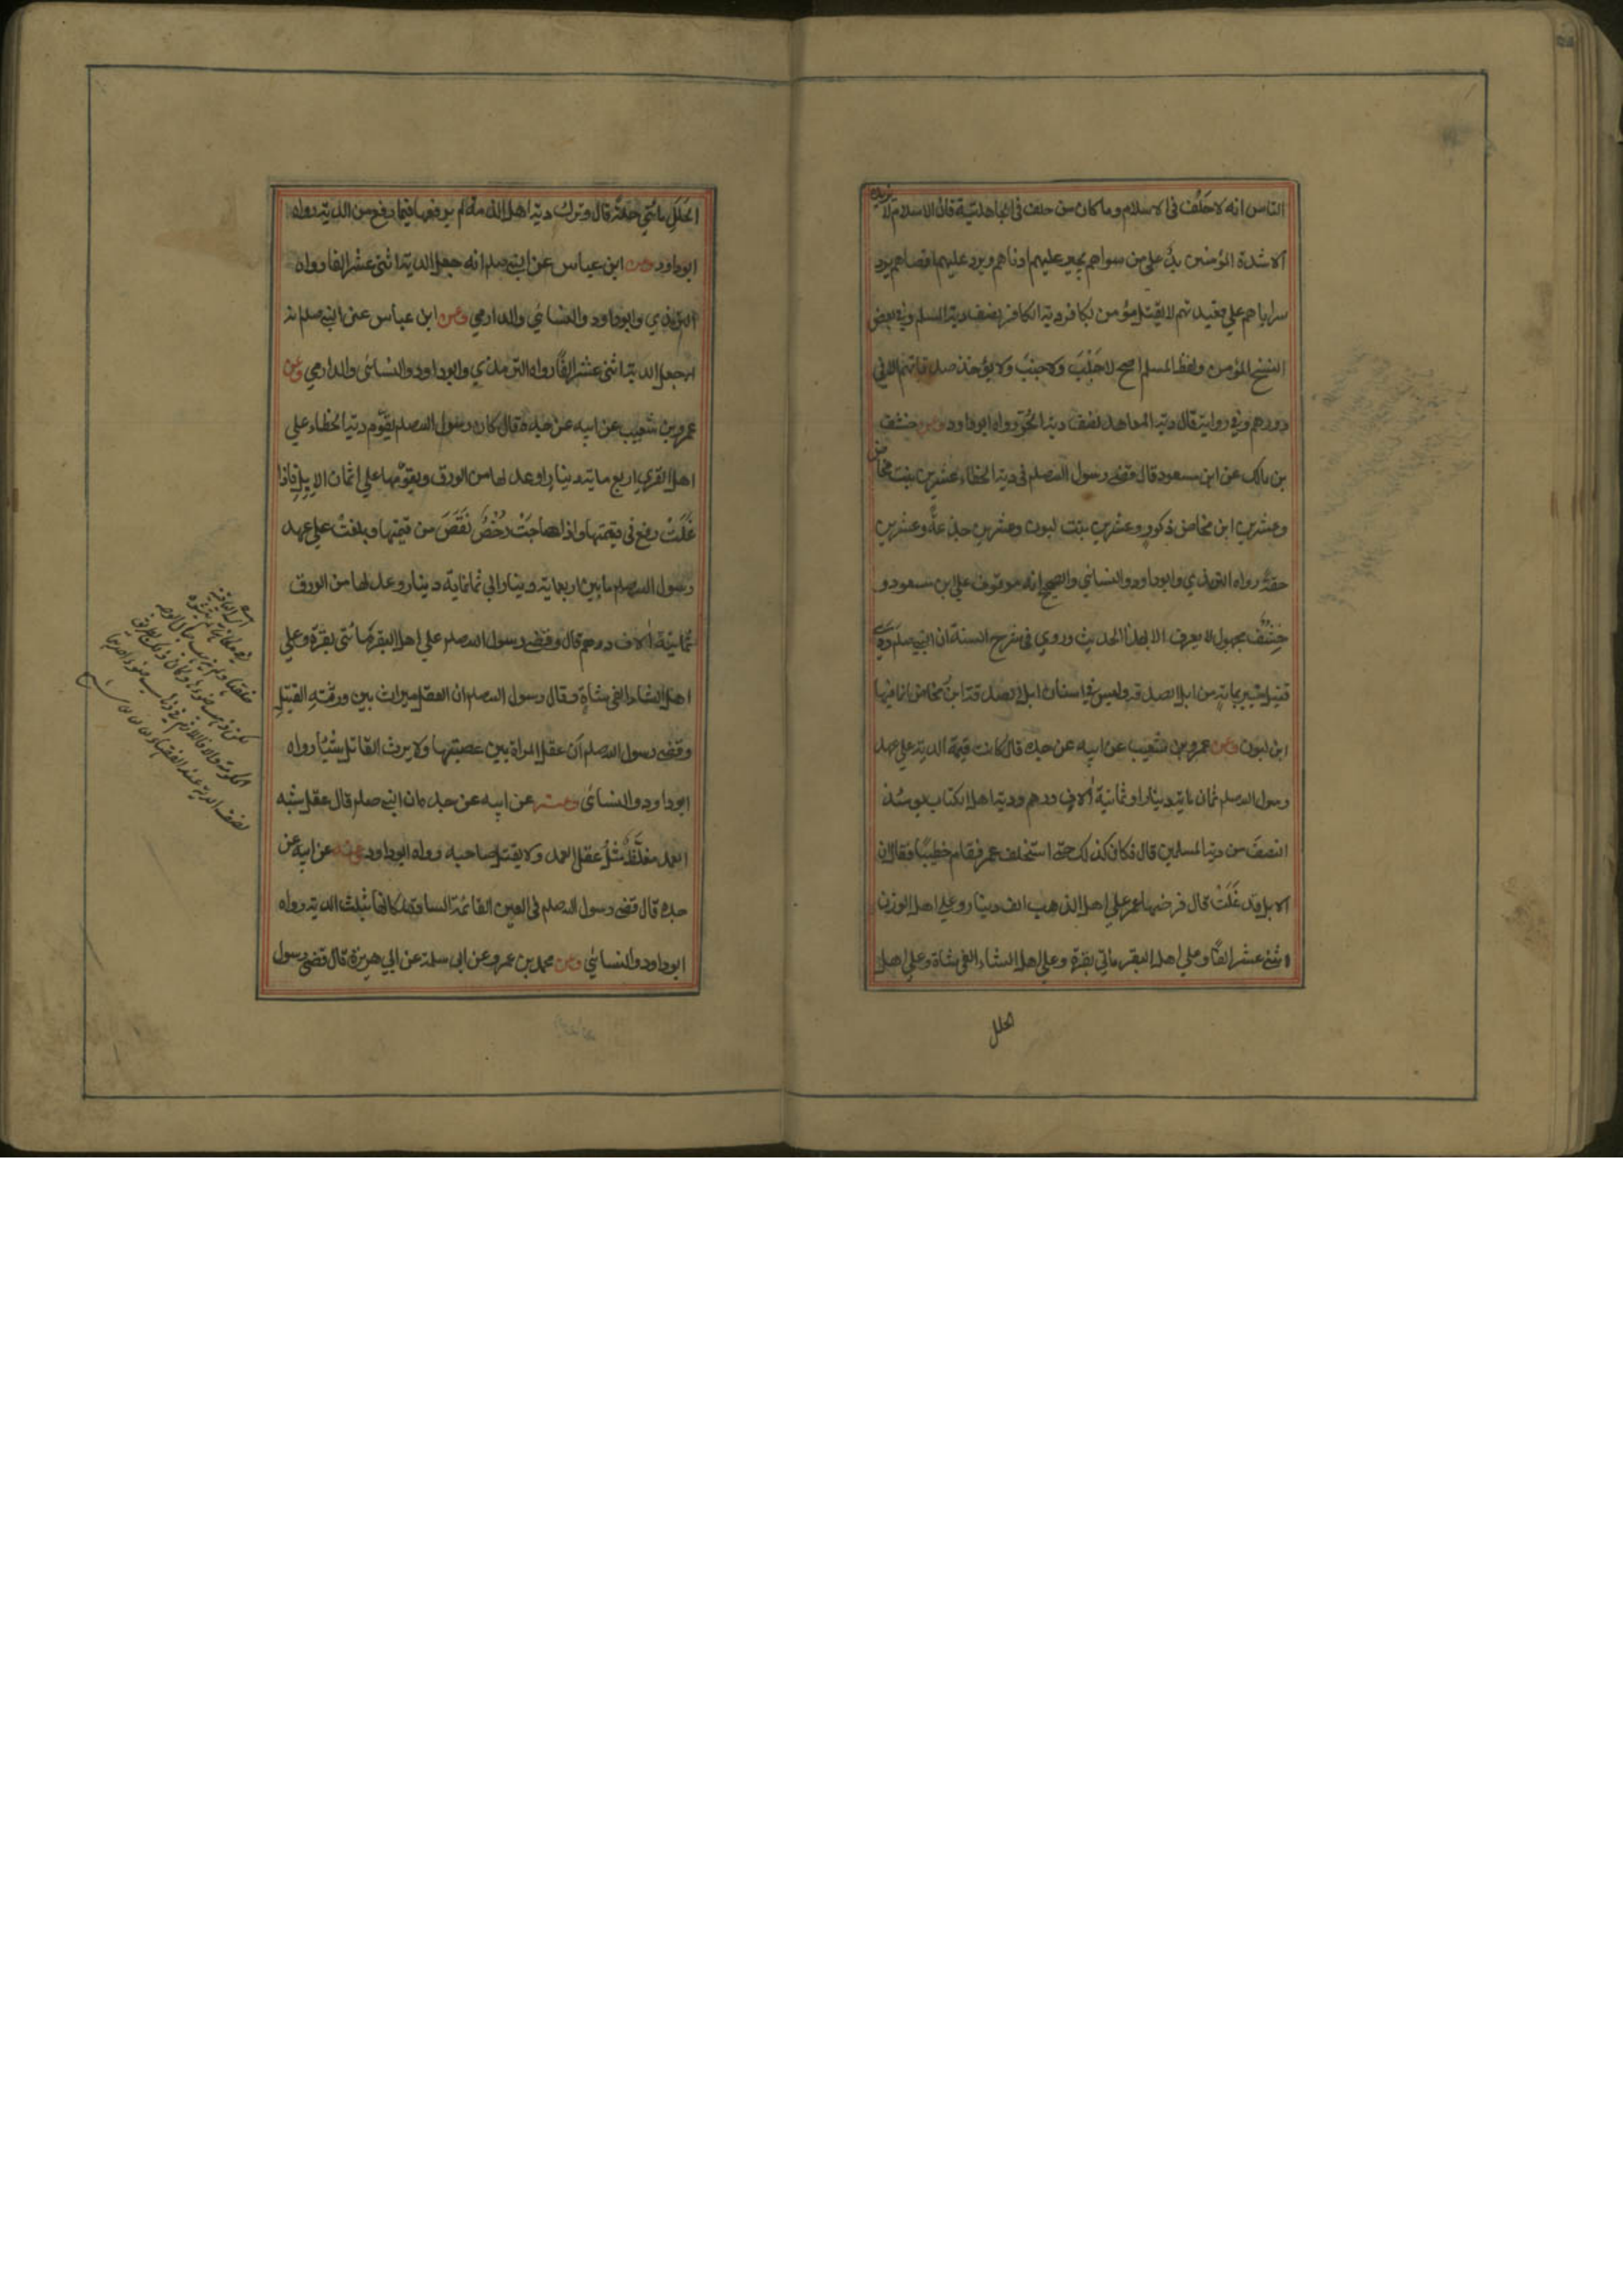 الناس انه لا حلف في الاسلام وما كان من حلف في الجاهلية فان الاسلام لا يزيده
الا شدة المؤمنين يد على من سواهم يجير عليهم ادناهم ويرد عليهم اقصاهم يرد
سراياهم على قعيدتهم لا يقتل مؤمن بكافر دية الكافر نصف دية المسلم وفي بعض
النسخ المؤمن ولفظ المسلم اصح لا جَلَبَ ولا جنبَ ولا يؤخذ صدقاتهم الا في
دورهم وفي رواية قال دية المعاهد نصف دية الحُرّ رواه ابوداود وعن خشف
بن مالك عن ابن مسعود قال قضى رسول الله صلم في دية الخطاء عشرين بنت مخاض
وعشرين ابن مخاض ذكورٍ وعشرين بنت لبون وعشرين جذعةً وعشرين
حقةً رواه الترمذي وابوداود والنسائي والصحيح انه موقوف على ابن مسعود و
خِشْفٌ مجهول لا يعرف الا بهذا الحديث وروي في شرح السنة ان النبي صلم وَدَى
قتيل خيبر بماية من ابل الصدقة وليس في اسنان ابل الصدقة ابن مخاض انما فيها
ابن لبون وعن عمرو بن شعيب عن ابيه عن جده قال كانت قيمة الدية على عهد
رسول الله صلم ثمان ماية دينار او ثمانية آلاف درهم ودية اهل الكتاب يومئذ
النصف من دية المسلمين قال فكان كذلك حتى استخلف عمر فقام خطيبًا فقال ان
الابل قد غَلَتْ قال فرضها عمر على اهل الذهب الف دينار وعلى اهل الورق
اثني عشر الفًا وعلى اهل البقر مائتي بقرة وعلى اهل الشاء الفي شاة وعلى اهل
الحلل
الحُلَلِ مائتي حلة قال وترك دية اهل الذمة لم يرفعها فيما رفع من الدية رواه
ابوداود وعن ابن عباس عن النبي صلم انه جعل الدية اثني عشر الفا رواه
الترمذي وابوداود والنسائي والدارمي وعن ابن عباس عن النبي صلم انه
انه جعل الدية اثني عشر الفًا رواه الترمذي وابوداود والنسائي والدارمي وعن
عمرو بن شعيب عن ابيه عن جده قال كان رسول الله صلم يقوّم دية الخطاء على
اهل القرى اربع ماية دينارٍ او عدلها من الورق ويقوّمها على اثمان الابل فاذا
غَلَتْ رفع في قيمتها واذا هاجَتْ رُخْصٌ نَقَصَ من قيمتها وبلغتْ على عهد
رسول الله صلم ما بين اربعماية دينار الى ثمانماية دينار وعدلها من الورق
ثمانية آلاف درهم قال وقضى رسول الله صلم على اهل البقر مائتي بقرة وعلى
اهل الشاء الفي شاةٍ وقال رسول الله صلم ان العقل ميراث بين ورثة القتيلِ
وقضى رسول الله صلم ان عقل المراة بين عصبتها ولا يرث القاتل شيئًا رواه
ابوداود والنسائي وعنه عن ابيه عن جده ان النبي صلم قال عقل شبه
العمد مغلَّظٌ مثلُ عقل العمد ولا يقتل صاحبه رواه ابوداود وعنه عن ابيه عن
جده قال قضى رسول الله صلم في العين القائمة السادة لمكانها بثلث الدية رواه
ابوداود والنسائي وعن محمد بن عمرو عن ابي سلمة عن ابي هريرة قال قضى رسول